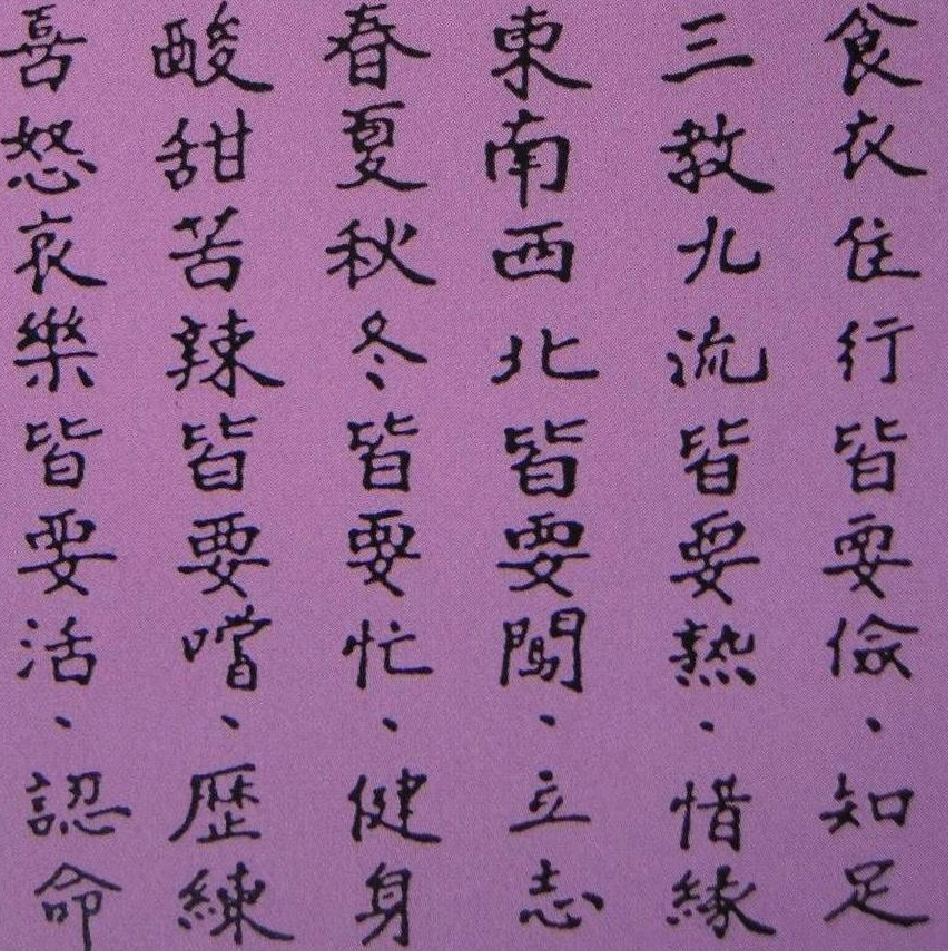 食衣住行皆要儉、知足
三教九流皆要熱、惜緣
東南西北皆要闖、立志
春夏秋冬皆要忙、健身
酸甜苦辣皆要嚐、歷練
喜怒哀樂皆要活、認命